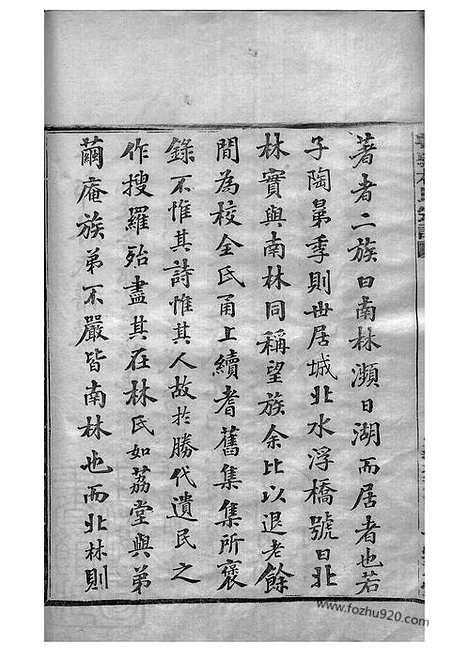 著者二族曰南林瀕日湖而居者也若
子陶苐季則世居城北水浮橋號曰北
林實與南林同稱望族余比以退老餘
間為校全氏甬上續耆舊集集所裒
錄不惟其詩惟其人故扵勝代遺民之
作搜羅殆盡其在林氏如荔堂與弟
繭庵族弟不嚴皆南林也而北林則
www.fozhu920.com